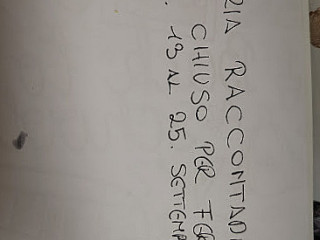 RIA RACCONTAD
CHIUSO PER FER
13 AL 25. SETTEMB